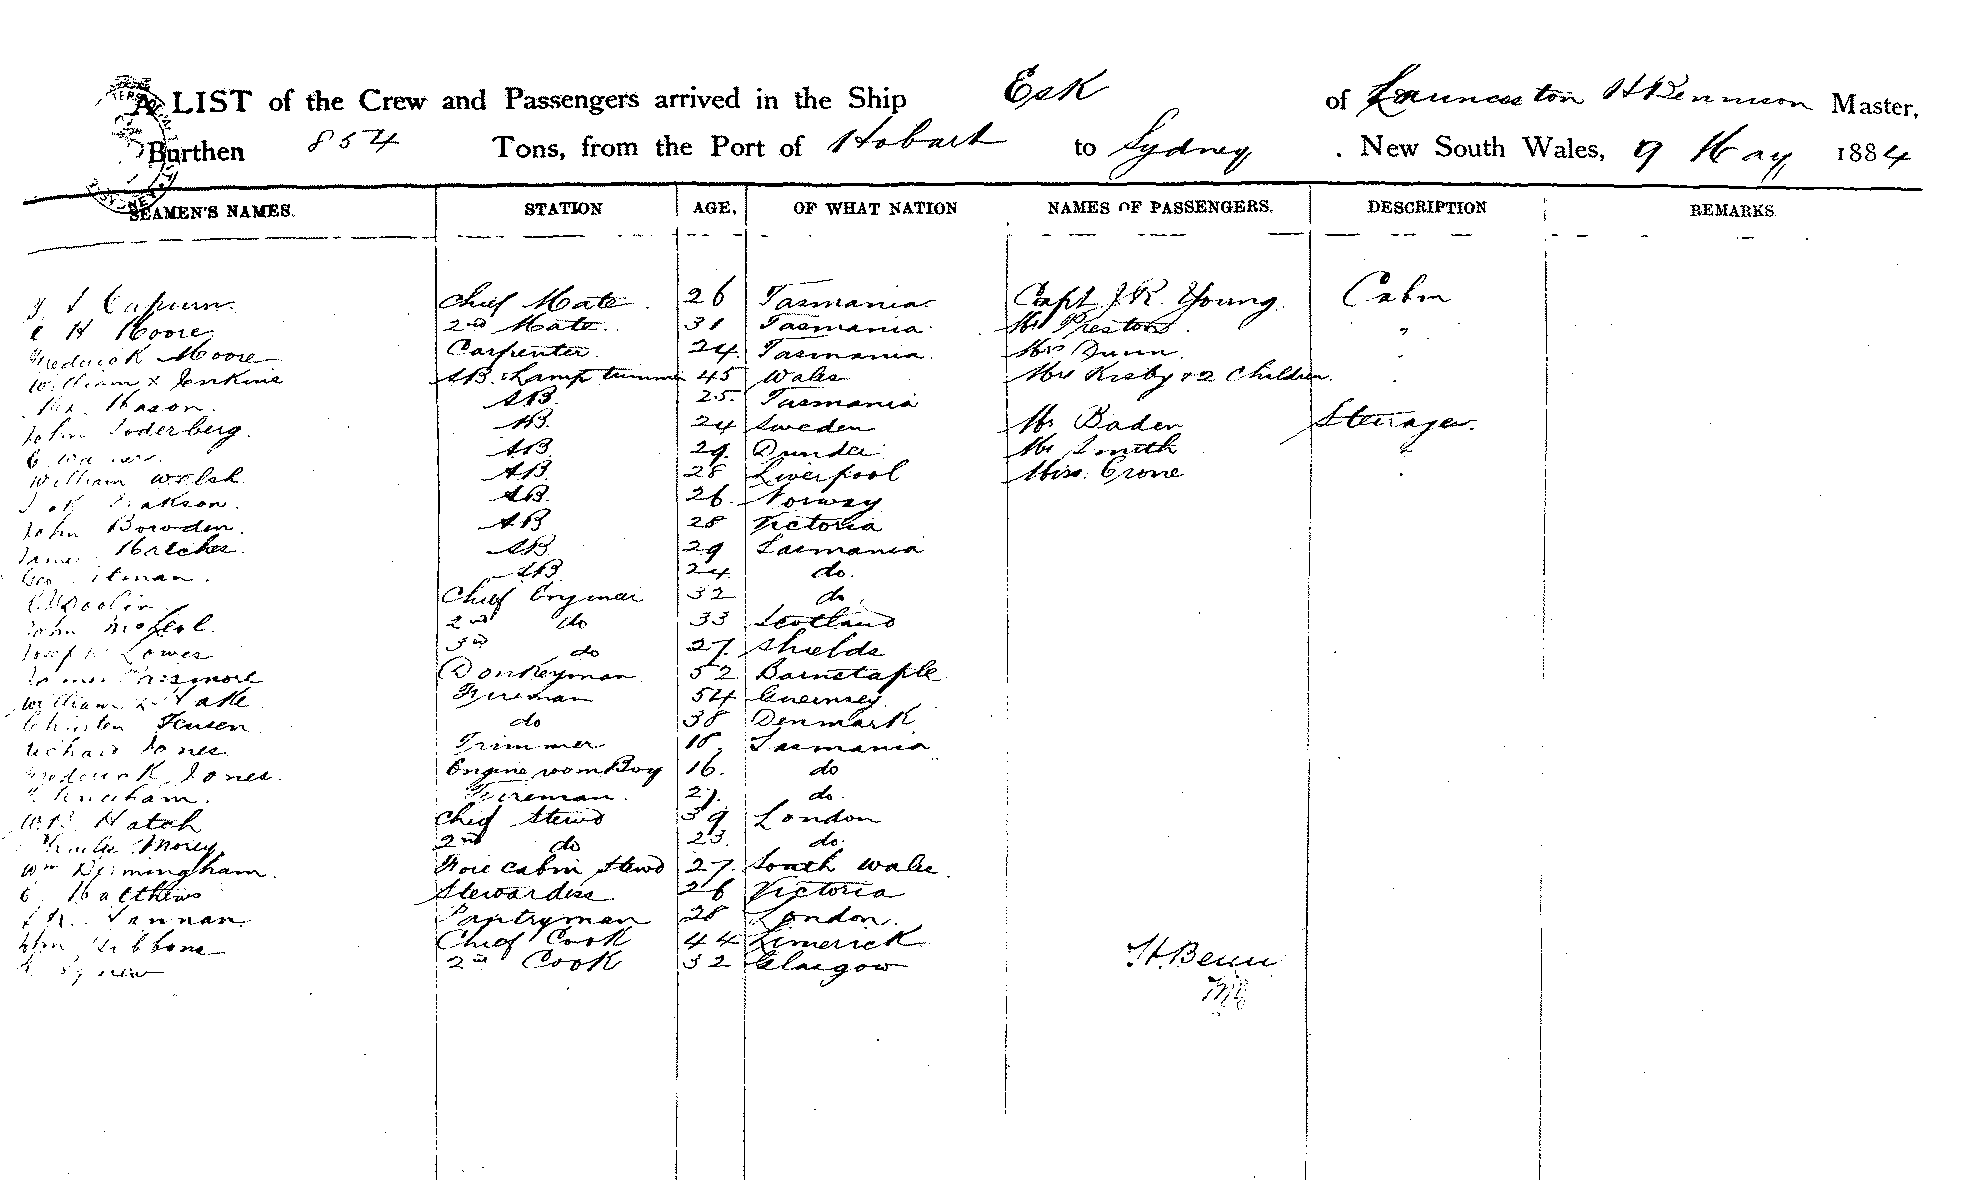 A LIST of the Crew and Passengers arrived in the Ship Esk of Launceston H Bennison Master,
Burthen 854 Tons, from the Port of Hobart to Sydney . New South Wales, 19 May 1884
SEAMEN'S NAMES. STATION AGE. OF WHAT NATION NAMES OF PASSENGERS. DESCRIPTION REMARKS
Chief Mate 26 Tasmania Capt J.R. Young Cabin
H Moore 2nd Mate 31 Tasmania Mr Preston "
Frederick Moore Carpenter 24 Tasmania Mrs Dunn
William Jenkins AB & Lamp trimmer 45 Wales Mrs Kisby & 2 Children
Mason AB 25 Tasmania
John Soderberg AB 24 Sweden Mr Baden Steerage
AB 29 Dundee Mr Smith "
William Welsh AB 28 Liverpool Miss Crone
AB 26 Norway
John Bowden AB 28 Victoria
James AB 29 Tasmania
Geo AB 24 do
Chief Engineer 32 do
John 2nd do 33 Scotland
Joseph Lowes 3rd do 27 Shields
James Passmore Donkeyman 52 Barnstaple
William Fireman 54 Guernsey
Jensen do 38 Denmark
Richard Jones Trimmer 18 Tasmania
Frederick Jones Engine room Boy 16 do
Fireman 27 do
Hatch Chief Stewd 39 London
Charles Morey 2nd do 23 do
Wm Birmingham Fore cabin Stewd 27 South Wales
Matthews Stewardess 26 Victoria
Hannan Pantryman 28 London
Gibbons Chief Cook 44 Limerick
2nd Cook 32 Glasgow
H. Benn